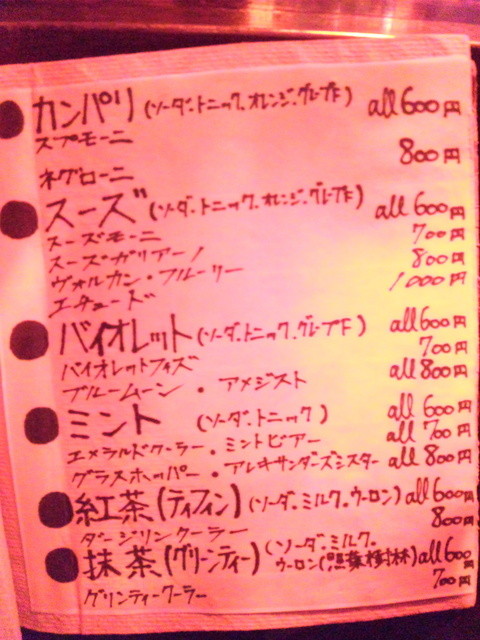 カンパリ(ソーダ・トニック・オレンジ・グレープF) all 600円
スプモーニ
ネグローニ 800円
スーズ(ソーダ・トニック・オレンジ・グレープF) all 600円
スーズモーニ 700円
スーズガリアーノ 800円
ヴォルカン・ブルーリー 1000円
エチュード
バイオレット(ソーダ・トニック・グレープF) all 600円
バイオレットフィズ 700円
ブルームーン・アメジスト all 800円
ミント (ソーダ・トニック) all 600円
エメラルドクーラー・ミントビアー all 700円
グラスホッパー・アレキサンダーズミスター all 800円
紅茶(ティフィン)(ソーダ・ミルク・ウーロン) all 600円
ダージリンクーラー 800円
抹茶(グリーンティー)(ソーダ・ミルク・ウーロン(照葉樹林) all 600円
グリンティークーラー 700円